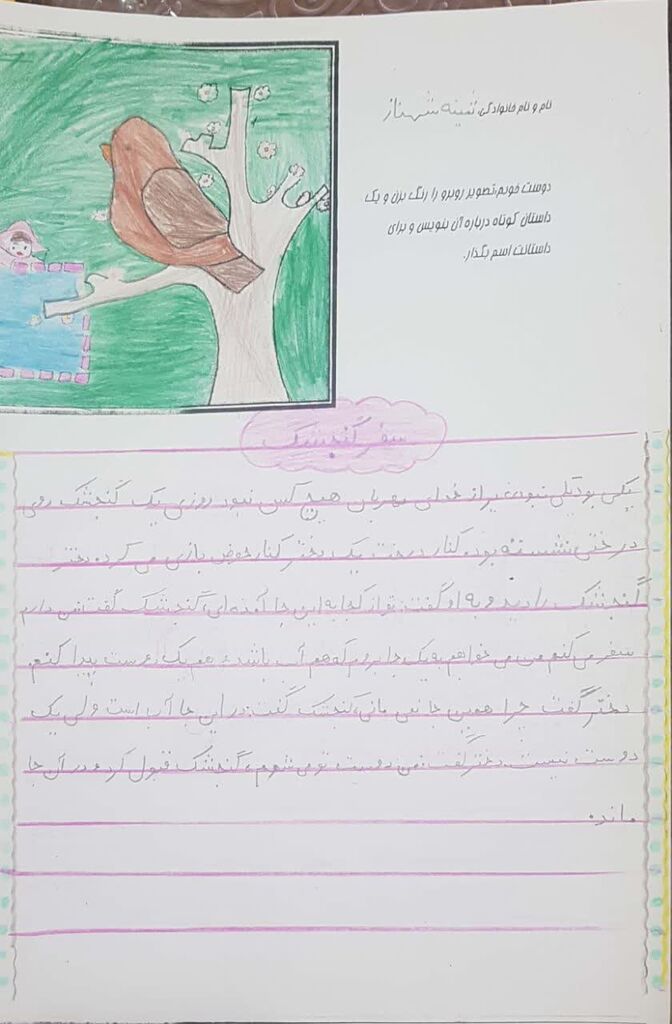 نام و نام خانوادگی: ثمینه شهناز
دوست خوبم،تصویر روبرو را رنگ بزن و یک
داستان کوتاه درباره آن بنویس و برای
داستانت اسم بگذار.
سفر گنجشک
یکی بود یکی نبود، غیر از خدای مهربان هیچ کس نبود روزی یک گنجشک روی
درختی نشسته بود. کنار درخت یک دختر کنار حوض بازی می کرد. دختر
گنجشک را دید و به او گفت: تو از کجا به این جا آمده ای، گنجشک گفت من دارم
سفر می کنم من می خواهم به یک جا بروم که هم آب باشد و هم یک دوست پیدا کنم
دختر گفت چرا همین جا نمی مانی، گنجشک گفت: در این جا آب است ولی یک
دوست نیست. دختر گفت: من دوست تو می شوم، گنجشک قبول کرد و در آن جا
ماند.